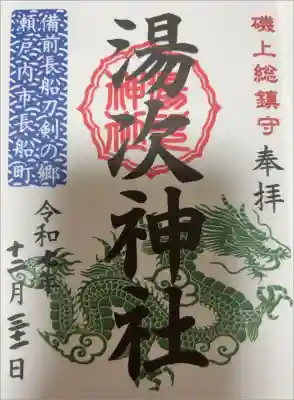 磯上総鎮守
奉拝
湯次神社
備前長船刀剣の郷
瀬戸内市長船町
十二月三十一日